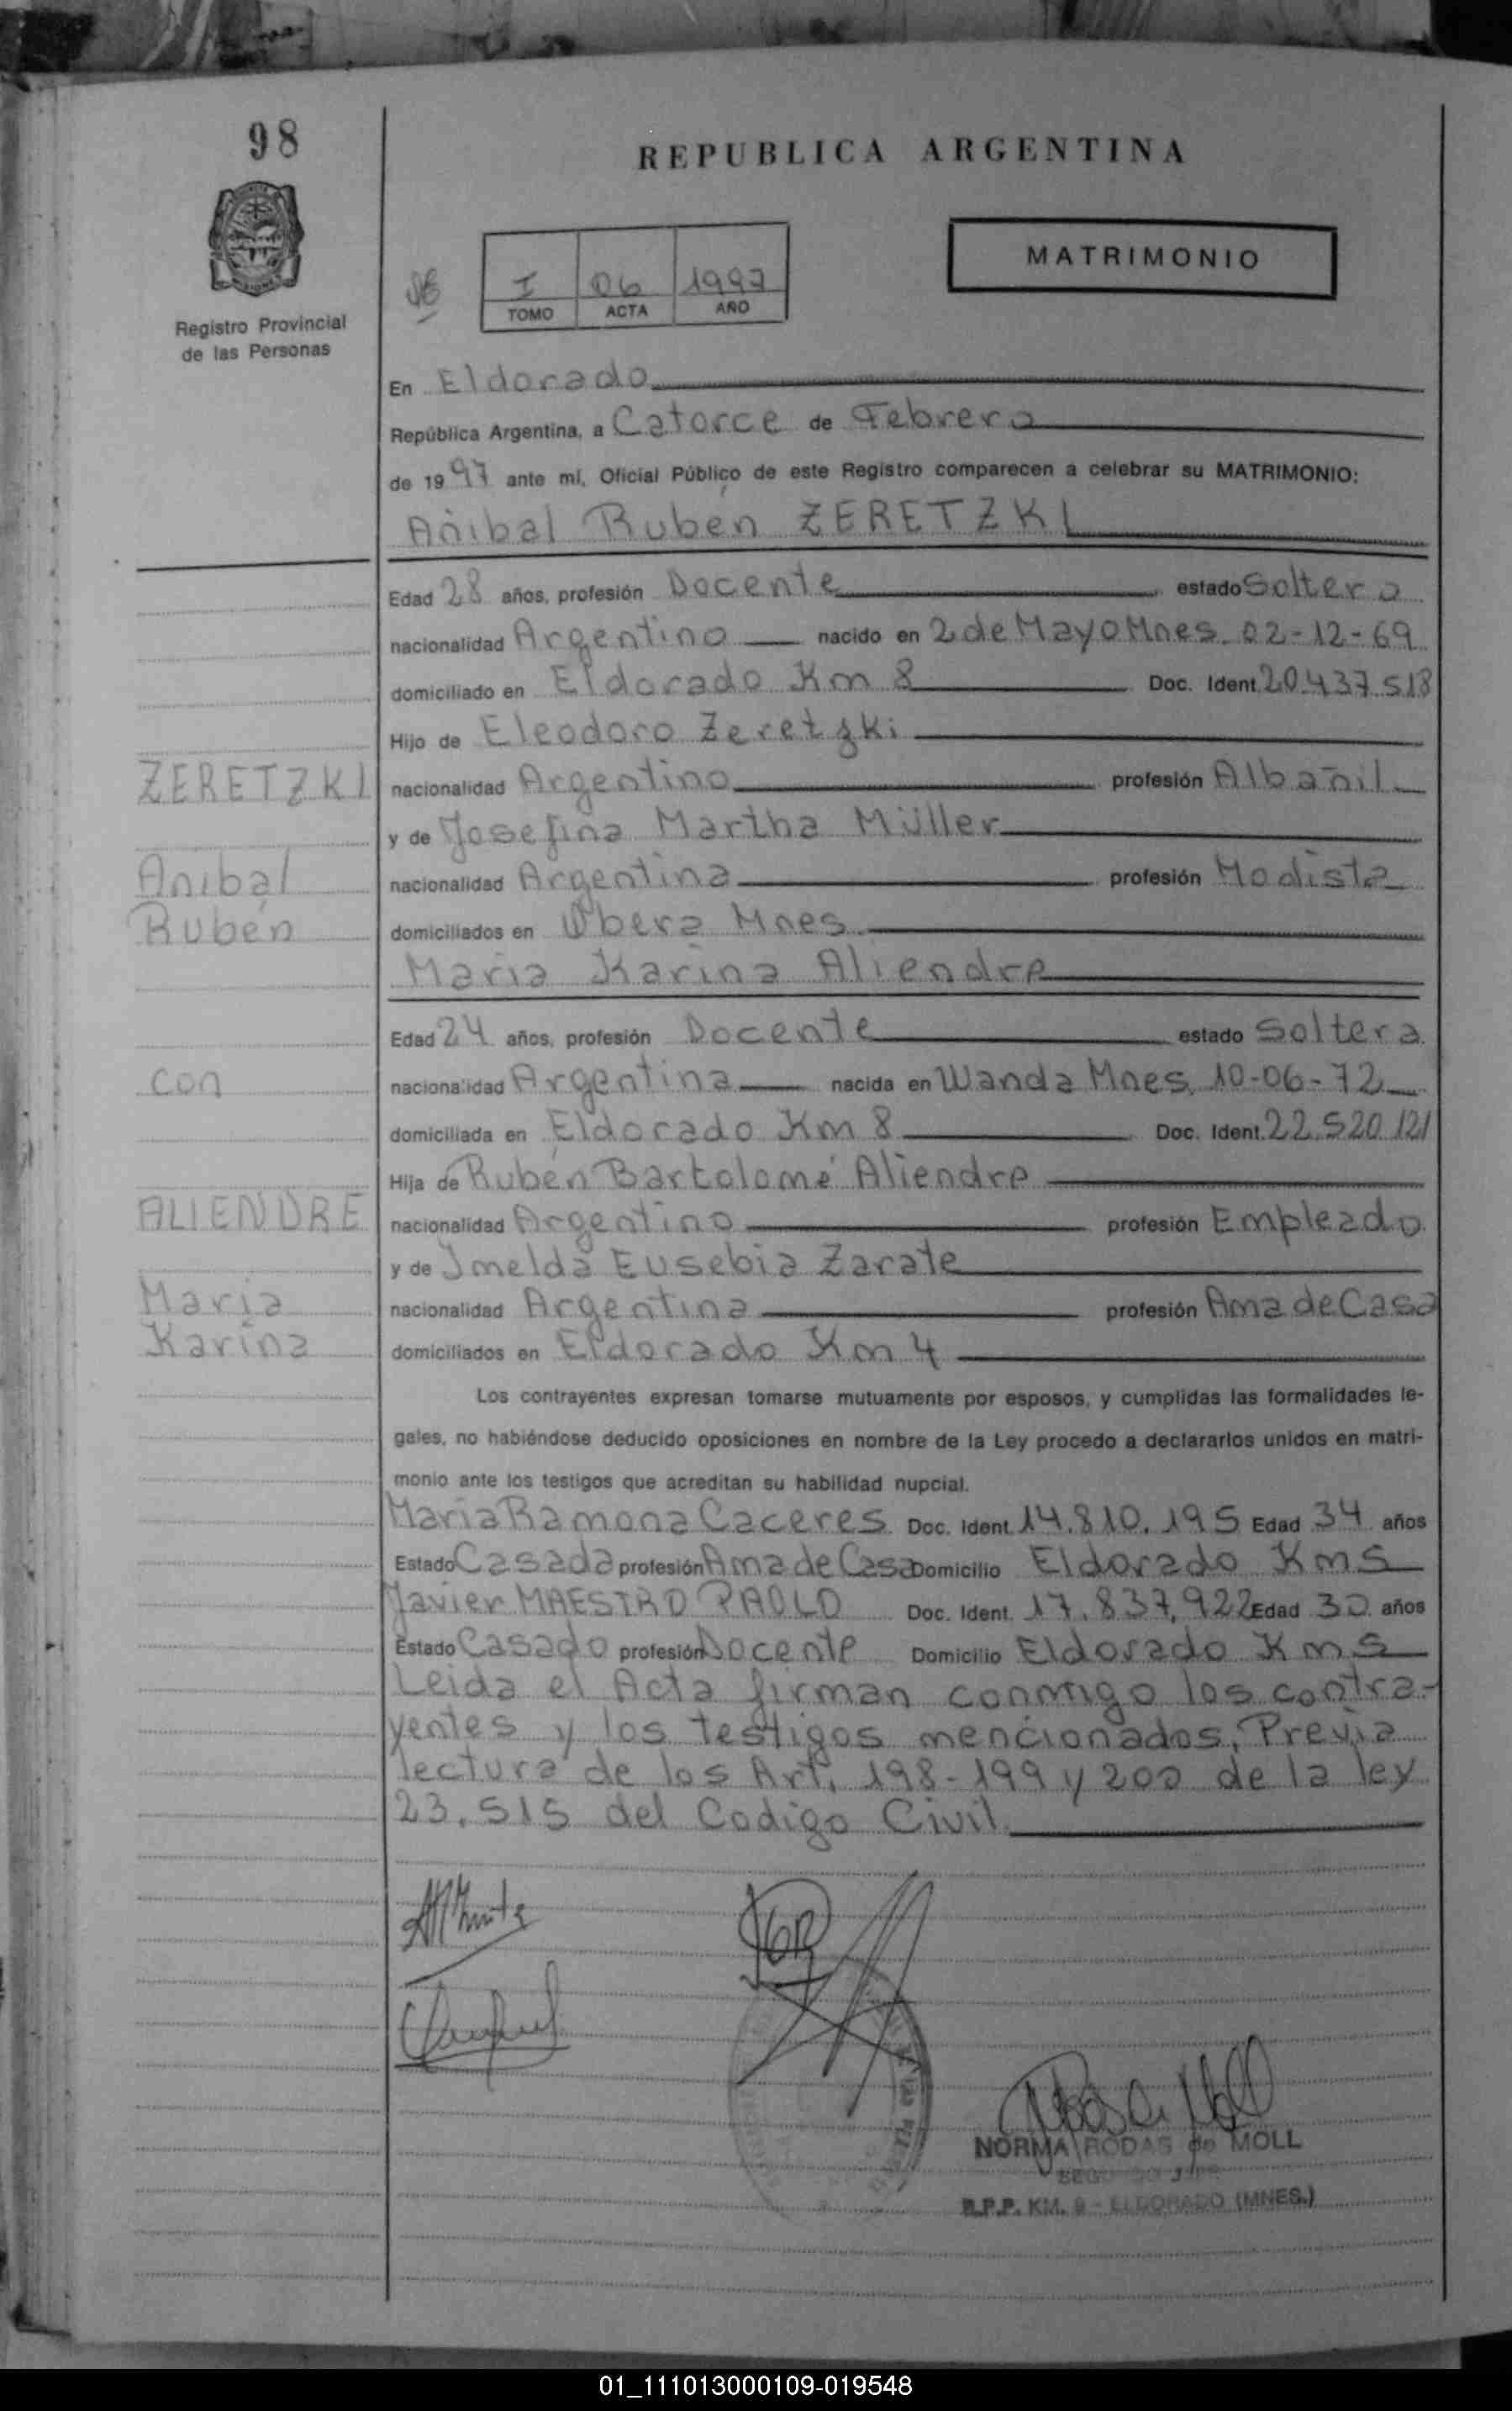 98
REPUBLICA ARGENTINA
MATRIMONIO
I 06 1997
TOMO ACTA AÑO
Registro Provincial
de las Personas
En Eldorado
República Argentina, a Catorce de Febrero
de 1997 ante mí, Oficial Público de este Registro comparecen a celebrar su MATRIMONIO:
Aníbal Rubén ZERETZKI
Edad 28 años, profesión Docente estado Soltero
nacionalidad Argentino nacido en 2 de Mayo Mnes. 02-12-69
domiciliado en Eldorado Km 8 Doc. Ident. 20.437.518
Hijo de Eleodoro Zeretzki
ZERETZKI nacionalidad Argentino profesión Albañil
y de Josefina Martha Müller
Aníbal nacionalidad Argentina profesión Modista
Rubén domiciliados en Obera Mnes
Maria Karina Aliendre
Edad 24 años, profesión Docente estado Soltera
con nacionalidad Argentina nacida en Wanda Mnes. 10-06-72
domiciliada en Eldorado Km 8 Doc. Ident. 22.520.121
Hija de Rubén Bartolomé Aliendre
ALIENDRE nacionalidad Argentino profesión Empleado
y de Imelda Eusebia Zarate
Maria nacionalidad Argentina profesión Ama de Casa
Karina domiciliados en Eldorado Km 4
Los contrayentes expresan tomarse mutuamente por esposos, y cumplidas las formalidades le-
gales, no habiéndose deducido oposiciones en nombre de la Ley procedo a declararlos unidos en matri-
monio ante los testigos que acreditan su habilidad nupcial.
Maria Ramona Caceres Doc. Ident. 14.810.195 Edad 34 años
Estado Casada profesión Ama de Casa Domicilio Eldorado Km 5
Javier MAESTRO PAOLO Doc. Ident. 17.837.922 Edad 30 años
Estado Casado profesión Docente Domicilio Eldorado Km 5
Leida el Acta firman conmigo los contra-
yentes y los testigos mencionados, Previa
lectura de los Art. 198-199 y 200 de la ley
23.515 del Codigo Civil
NORMA RODAS de MOLL
R.P.P. KM. 9 - ELDORADO (MNES.)
01_111013000109-019548